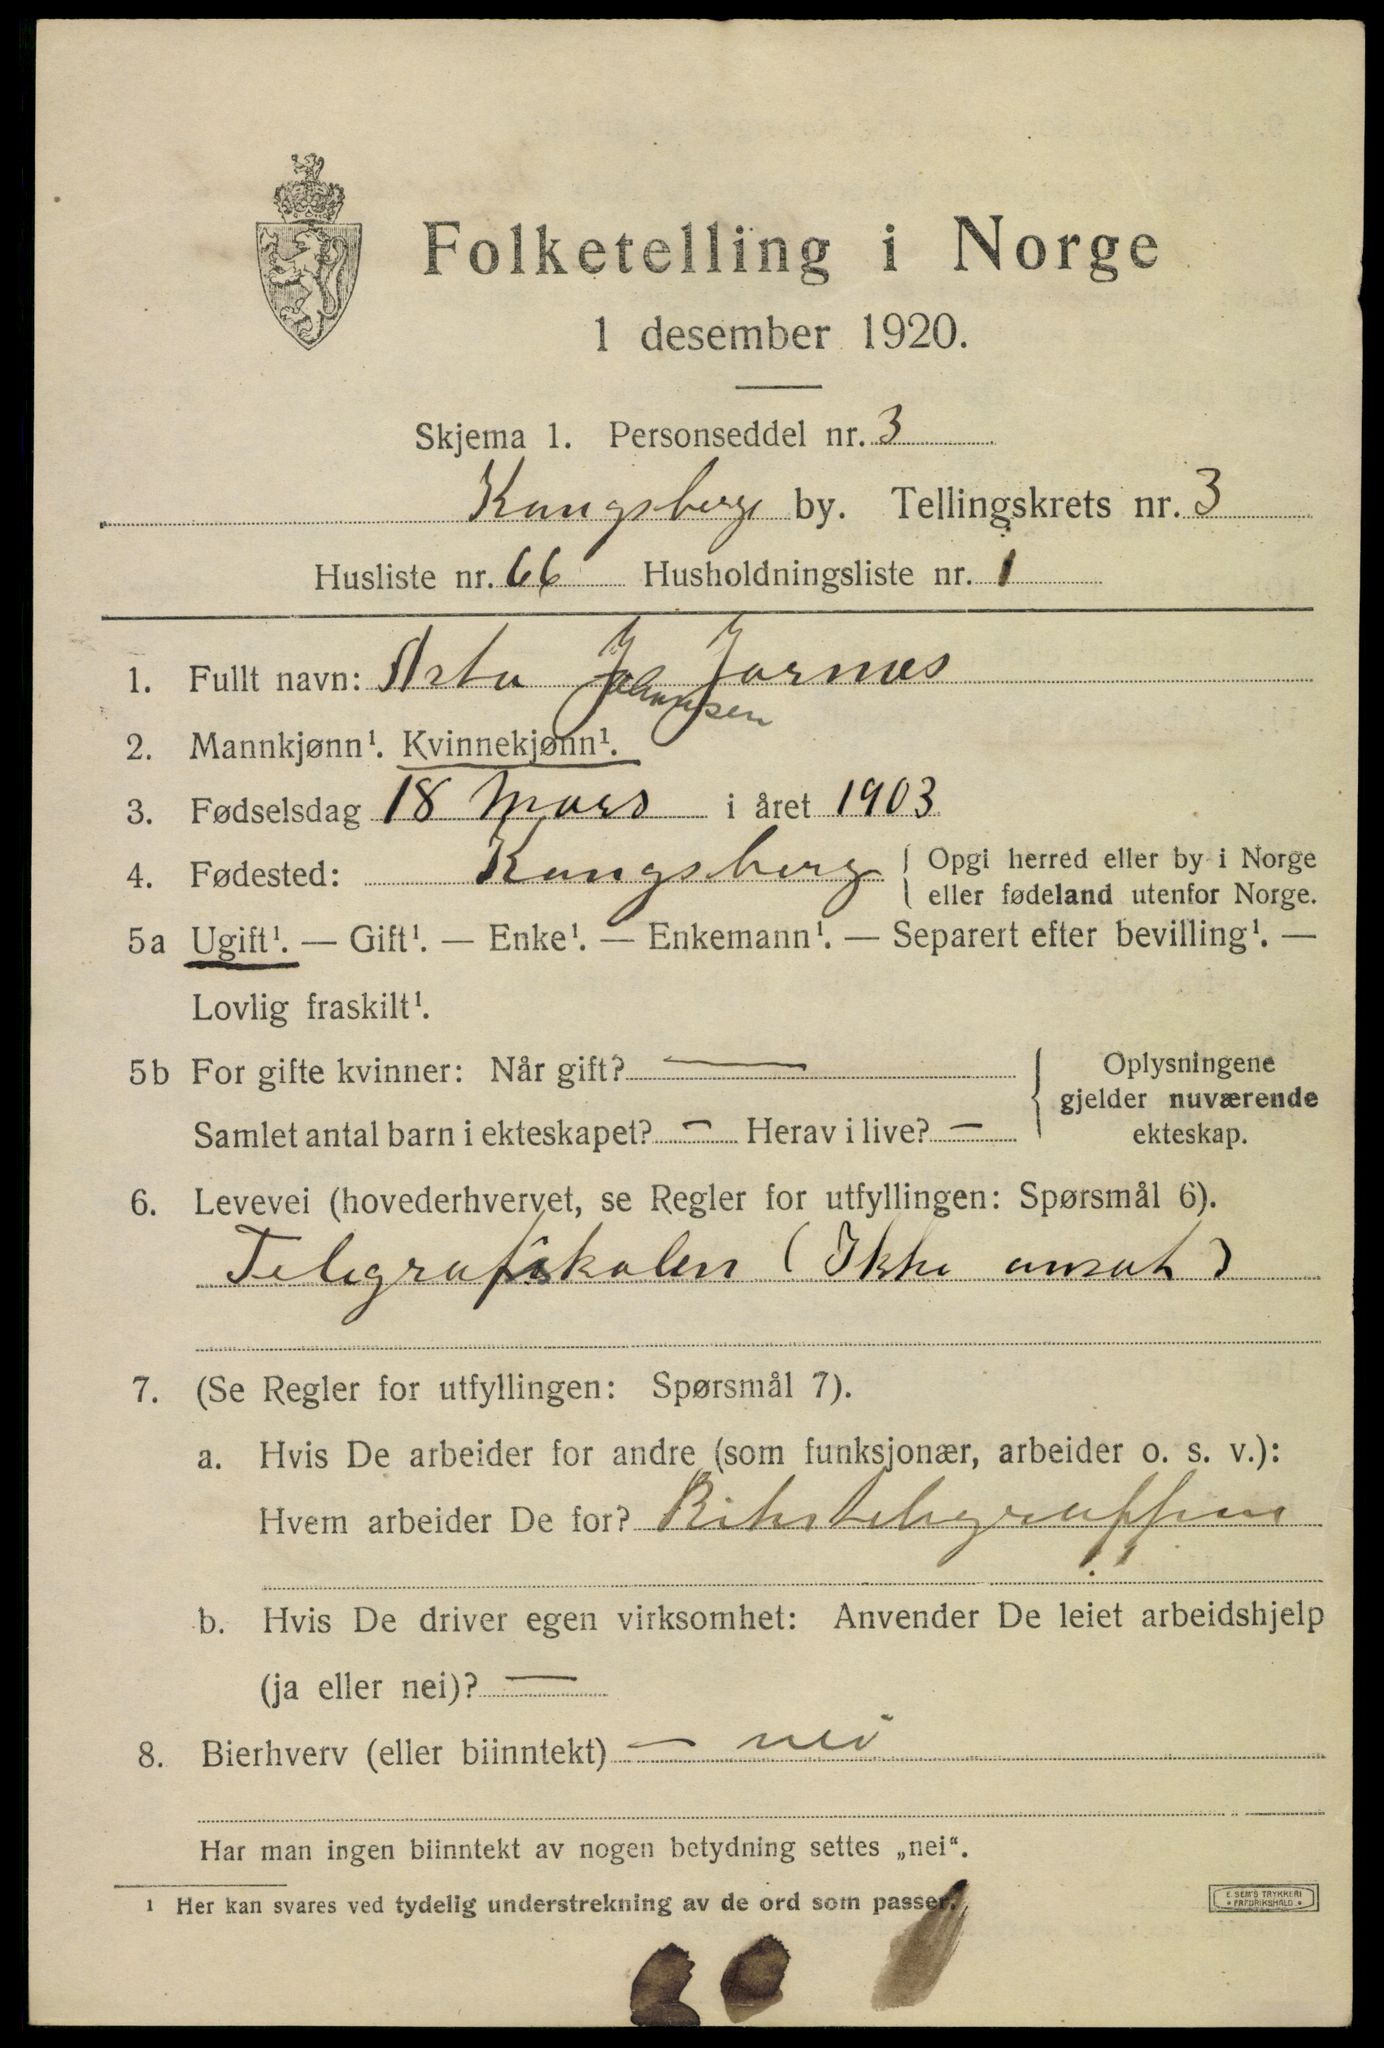 Folketelling i Norge
1 desember 1920.
Skjema 1. Personseddel nr. 3
Kongsberg by. Tellingskrets nr. 3
Husliste nr. 66 Husholdningsliste nr. 1
1. Fullt navn: Asta J. Jarnæs
Johansen
2. Mannkjønn¹. Kvinnekjønn¹.
3. Fødselsdag 18 Mars i året 1903
4. Fødested: Kongsberg { Opgi herred eller by i Norge
eller fødeland utenfor Norge.
5a Ugift¹. — Gift¹. — Enke¹. — Enkemann¹. — Separert efter bevilling¹. —
Lovlig fraskilt¹.
5b For gifte kvinner: Når gift? —
Samlet antal barn i ekteskapet? — Herav i live? —
{ Oplysningene
gjelder nuværende
ekteskap.
6. Levevei (hovederhvervet, se Regler for utfyllingen: Spørsmål 6).
Telegrafskolen (Ikke ansat)
7. (Se Regler for utfyllingen: Spørsmål 7).
a. Hvis De arbeider for andre (som funksjonær, arbeider o. s. v.):
Hvem arbeider De for? Rikstelegraffen
b. Hvis De driver egen virksomhet: Anvender De leiet arbeidshjelp
(ja eller nei)? —
8. Bierhverv (eller biinntekt) — nei
Har man ingen biinntekt av nogen betydning settes „nei“.
¹ Her kan svares ved tydelig understrekning av de ord som passer.
E. SEM'S TRYKKERI
• FREDRIKSHALD •